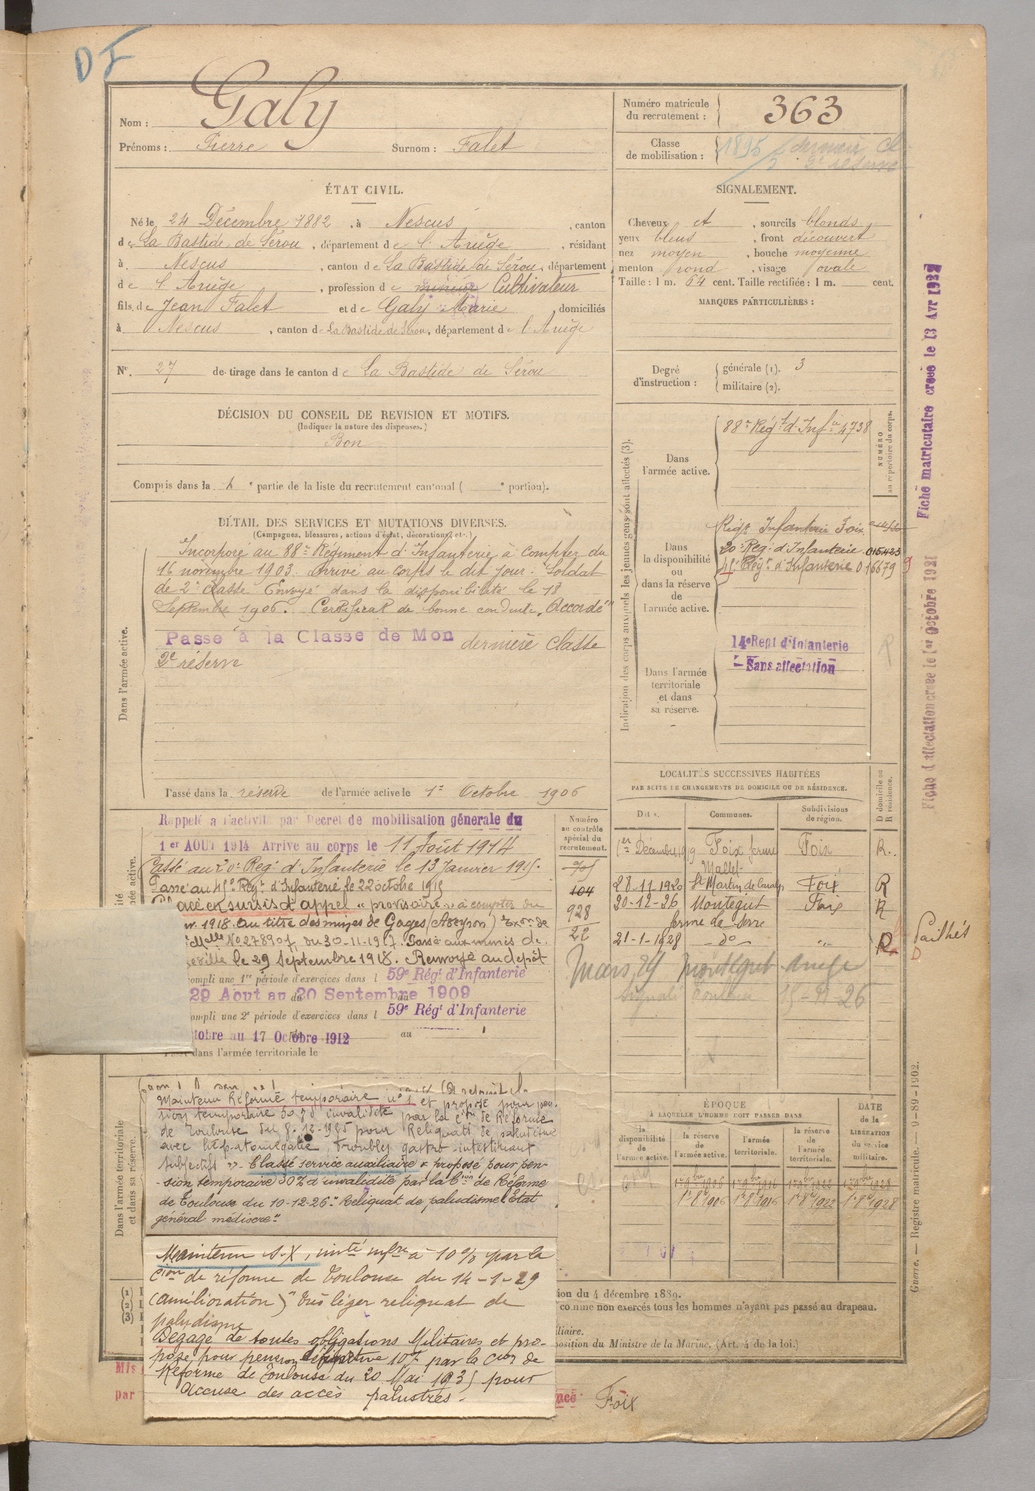 DF
Nom : Galy
Prénoms : Pierre Surnom : Falet
Numéro matricule du recrutement : 363
Classe de mobilisation : 1895 dernière Cl
2e réserve
ÉTAT CIVIL.
Né le 24 Décembre 1882, à Nescus, canton
de La Bastide de Sérou, département de l'Ariège, résidant
à Nescus, canton de La Bastide de Sérou, département
de l'Ariège, profession de mineur Cultivateur
fils de Jean Falet et de Galy Marie, domiciliés
à Nescus, canton de La Bastide de Sérou, département de l'Ariège
No. 27 de tirage dans le canton de La Bastide de Sérou
SIGNALEMENT.
Cheveux et, sourcils blonds
yeux bleus, front découvert
nez moyen, bouche moyenne
menton rond, visage ovale
Taille : 1 m. 64 cent. Taille rectifiée : 1 m. cent.
MARQUES PARTICULIÈRES :
Degré d'instruction : générale (1). 3
militaire (2).
DÉCISION DU CONSEIL DE REVISION ET MOTIFS.
(Indiquer la nature des dispenses.)
Bon
Compris dans la partie de la liste du recrutement cantonal ( e portion).
DÉTAIL DES SERVICES ET MUTATIONS DIVERSES.
(Campagnes, blessures, actions d'éclat, décorations, etc.)
Dans l'armée active.
Incorporé au 88e Régiment d'Infanterie à compter du
16 novembre 1903. Arrivé au corps le dit jour. Soldat
de 2e classe. Envoyé dans la disponibilité le 18
Septembre 1906. Certificat de bonne conduite "Accordé"
Passé à la Classe de Mon dernière classe
2e réserve
Passé dans la réserve de l'armée active le 1er Octobre 1906
Indication des corps auxquels les jeunes gens sont affectés (3).
NUMÉRO au répertoire du corps.
Dans l'armée active.
88e Régt d'Infie 4738
Dans la disponibilité ou dans la réserve de l'armée active.
Régt Infanterie Foix
20e Reg. d'Infanterie 015423
Regt d'Infanterie 016679
Dans l'armée territoriale et dans sa réserve.
14e Regt d'Infanterie
Sans affectation
R
Fiche matriculaire créée le 13 Avr
Fiche d'affectation créée le 1er Octobre 1921
Rappelé à l'activité par Décret de mobilisation générale du
1er AOUT 1914 Arrivé au corps le 11 Août 1914
Passé au 20e Reg. d'Infanterie le 13 Janvier 1915.
Passé au Regt d'Infanterie le 22 octobre 1915
Placé en sursis d'appel "provisoire" à compter du
1918. Au titre des mines de Gages (Aveyron)
du 30-11-1917. Passé aux mines de
le 29 Septembre 1918. Renvoyé au dépôt
compli une 1re période d'exercices dans l 59e Régt d'Infanterie
29 Aout au 20 Septembre 1909
compli une 2e période d'exercices dans l 59e Régt d'Infanterie
tobre au 17 Octobre 1912
dans l'armée territoriale le
Numéro au contrôle spécial du recrutement.
104
928
22
LOCALITÉS SUCCESSIVES HABITÉES
PAR SUITE DE CHANGEMENTS DE DOMICILE OU DE RÉSIDENCE.
Dates. Communes. Subdivisions de région. D domicile ou R résidence.
1er Décembre Foix ferme Foix R.
28-11-1920 Foix R
20-12-26 Montégut Foix R
21-1-1928 do R
Pailhès
D
Mars 29 Montégut Ariège
signalé Toulouse
Dans l'armée territoriale et dans sa réserve.
Maintenu Réformé temporaire n° 1 et proposé pour pen-
sion temporaire invalidité par la Cion de Réforme
de Toulouse du pour Reliquats de paludisme
avec hépatomégalie, troubles gastro-intestinaux
subjectifs. Classé service auxiliaire & proposé pour pen-
sion temporaire d'invalidité par la Cion de Réforme
de Toulouse du 10-12-26. "Reliquat de paludisme. État
général médiocre"
Maintenu S.X, invté infre à 10% par la
Cion de réforme de Toulouse du 14-1-29
(amélioration) "très léger reliquat de
paludisme
Dégagé de toutes obligations Militaires et pro-
posé pour pension définitive 10% par la Cion de
Réforme de Toulouse du 20 Mai 1935 pour
Accuse des accès palustres.
ÉPOQUE
À LAQUELLE L'HOMME DOIT PASSER DANS
la disponibilité de l'armée active.
la réserve de l'armée active.
l'armée territoriale.
la réserve de l'armée territoriale.
DATE de la LIBÉRATION du service militaire.
1er 8bre 1906 1er 8bre 1916 1er 8bre 1922 1er 8bre 1928
tion du 4 décembre 1889.
comme non exercés tous les hommes n'ayant pas passé au drapeau.
iliaire.
position du Ministre de la Marine. (Art. 4 de la loi.)
Mis
par
Foix
Guerre. — Registre matricule. — 9-89-1902.